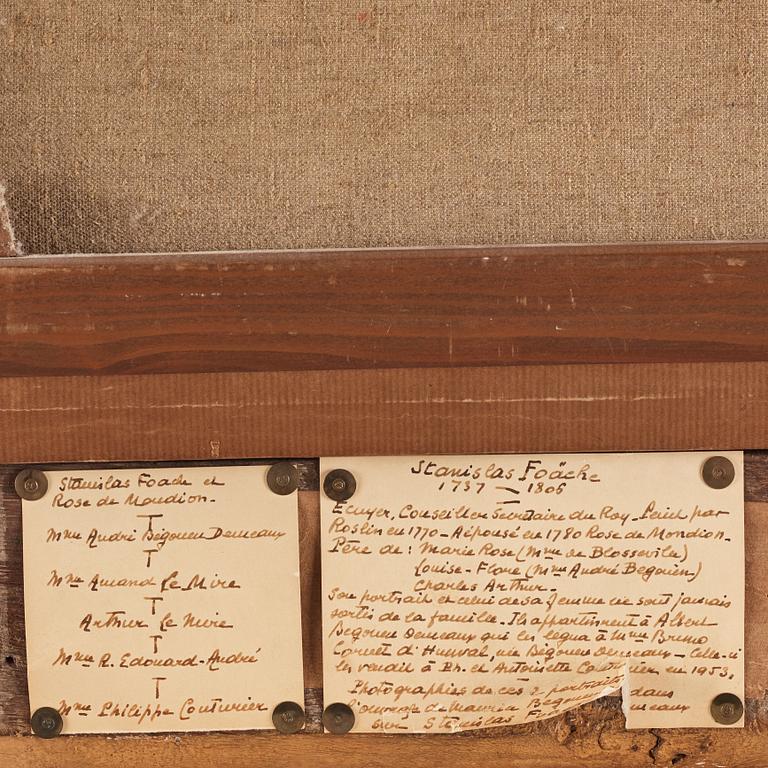 Stanislas Foache et
Rose de Mondion -
Mme André Bégouen Demeaux
Mme Amand Le Mire
Arthur Le Mire
Mme R. Edouard-André
Mme Philippe Couturier
Stanislas Foäche
1737 — 1806
Ecuyer, Conseiller Secrétaire du Roy - Peint par
Roslin en 1770 - A épousé en 1780 Rose de Mondion -
Père de : Marie Rose (Mme de Blosseville)
Louise - Flore (Mme André Begouen)
Charles Arthur -
Son portrait et celui de sa femme ne sont jamais
sortis de la famille - Ils appartinrent à Albert
Begouen Demeaux qui les légua à Mme Bruno
Cornet d'Hunval, née Bégouen Demeaux - Celle-ci
les vendit à Ph. et Antoinette Couturier en 1953.
Photographies de ces 2 portraits dans
l'ouvrage de Maurice Bégouen meaux
sur Stanislas